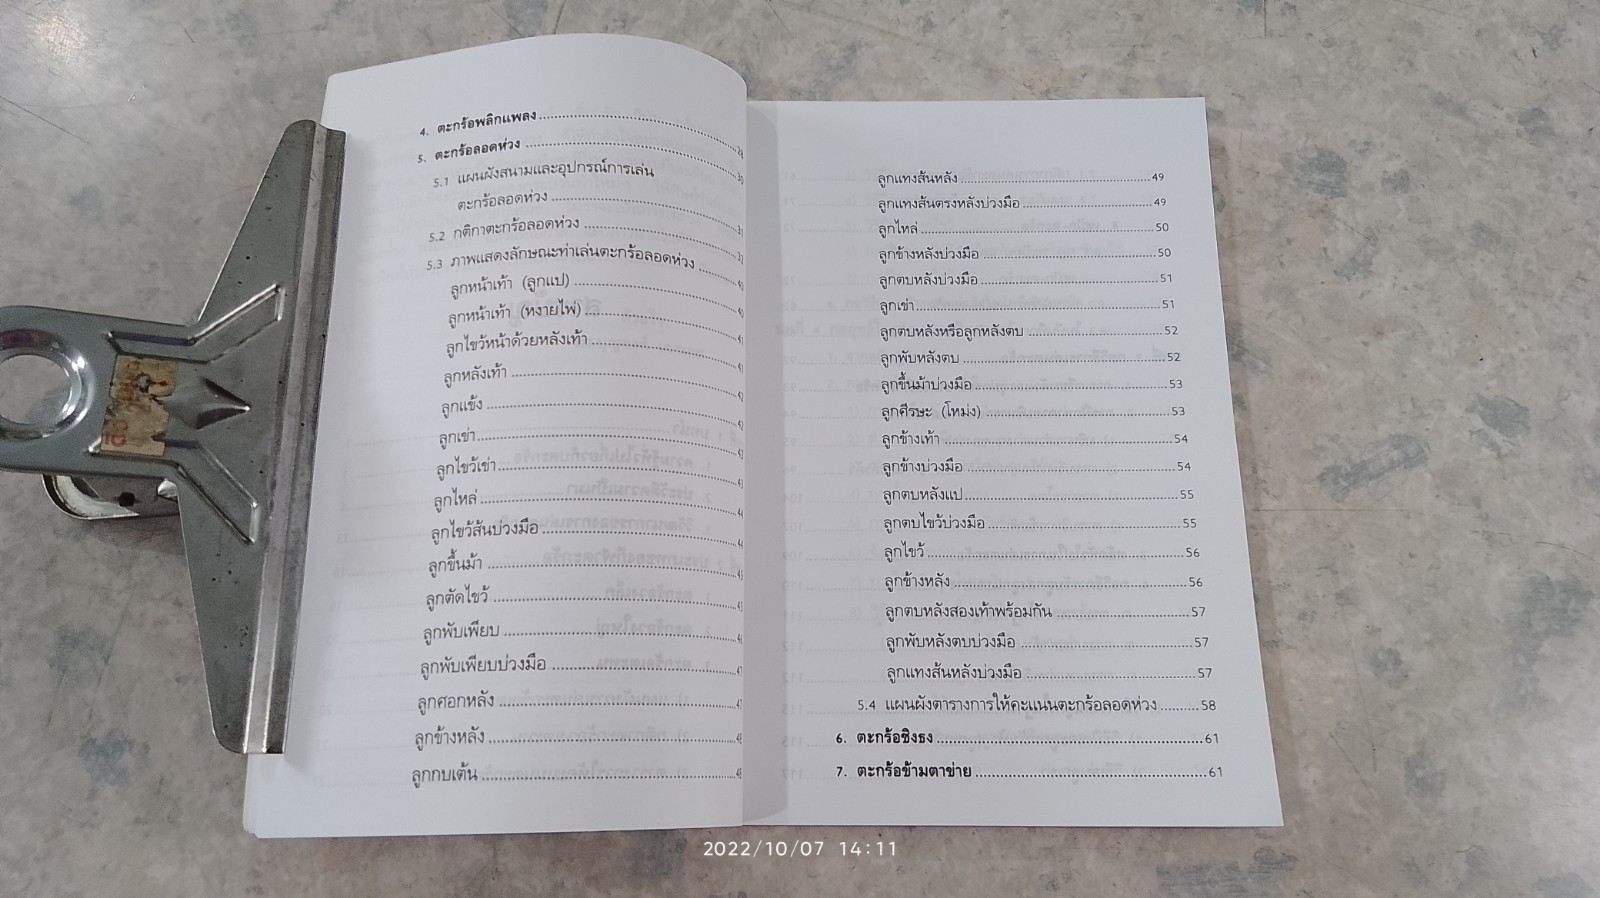 4. ตะกร้อพลิกแพลง
5. ตะกร้อลอดห่วง
5.1 แผนผังสนามและอุปกรณ์การเล่น
ตะกร้อลอดห่วง
5.2 กติกาตะกร้อลอดห่วง
5.3 ภาพแสดงลักษณะท่าเล่นตะกร้อลอดห่วง
ลูกหน้าเท้า (ลูกแป)
ลูกหน้าเท้า (หงายไพ่)
ลูกไขว้หน้าด้วยหลังเท้า
ลูกหลังเท้า
ลูกแข้ง
ลูกเข่า
ลูกไขว้เข่า
ลูกไหล่
ลูกไขว้ส้นบ่วงมือ
ลูกขึ้นม้า
ลูกตัดไขว้
ลูกพับเพียบ
ลูกพับเพียบบ่วงมือ
ลูกศอกหลัง
ลูกข้างหลัง
ลูกกบเต้น
ลูกแทงส้นหลัง 49
ลูกแทงส้นตรงหลังบ่วงมือ 49
ลูกไหล่ 50
ลูกข้างหลังบ่วงมือ 50
ลูกตบหลังบ่วงมือ 51
ลูกเข่า 51
ลูกตบหลังหรือลูกหลังตบ 52
ลูกพับหลังตบ 52
ลูกขึ้นม้าบ่วงมือ 53
ลูกศีรษะ (โหม่ง) 53
ลูกข้างเท้า 54
ลูกข้างบ่วงมือ 54
ลูกตบหลังแป 55
ลูกตบไขว้บ่วงมือ 55
ลูกไขว้ 56
ลูกข้างหลัง 56
ลูกตบหลังสองเท้าพร้อมกัน 57
ลูกพับหลังตบบ่วงมือ 57
ลูกแทงส้นหลังบ่วงมือ 57
5.4 แผนผังตารางการให้คะแนนตะกร้อลอดห่วง 58
6. ตะกร้อชิงธง 61
7. ตะกร้อข้ามตาข่าย 61
2022/10/07 14:11